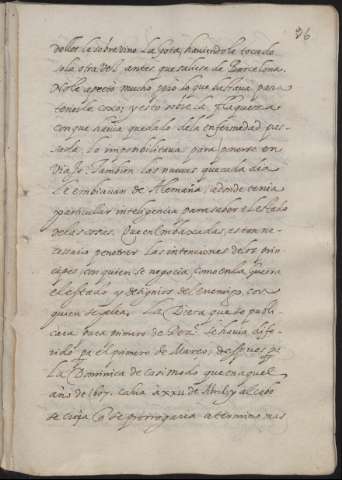 76
dolor le sobrevino la gota, haviendole tocado
sola otra vez antes que saliese de Barcelona.
No le apretò mucho pero lo que bastava para
tenerle coxo; y esto sobre la flaqueza
con que havia quedado dela enfermedad pas
sada lo imosibilitava para ponerse en
viaje. Tambien las nuevas que cada dia
le embiavan de Alemaña, adonde tenia
particular inteligencia para saber el estado
de las cosas. Que en Embaxadas, es tan ne-
cessario penetrar las intenciones delos prin-
cipes con quien se negocia, como en la guerra
el estado y designios del enemigo, con
quien se pelea. La Dieta que se publi-
cara para primero de se havia dife-
rido pa el primero de Março, despues pa
la Dominica de Casimodo que en aquel
año de 1607. cahia a XXII de Abril, y al cabo
se decia q̃ se prorrogaria a termino mas